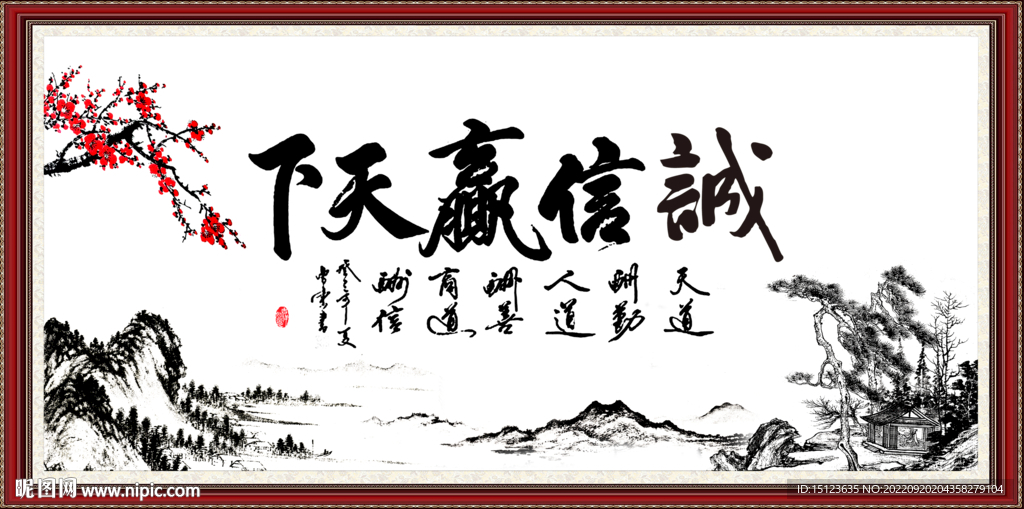 誠信贏天下
天道
酬勤
人道
酬善
商道
酬信
昵图网 www.nipic.com
ID:15123635 NO:20220920204358279104